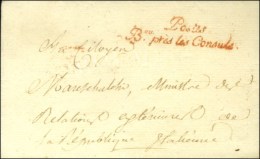 Postes
B.au près les Consuls.
Au Citoyen
Mareschalchi, Ministre des
Relations extérieures de
la République Italienne